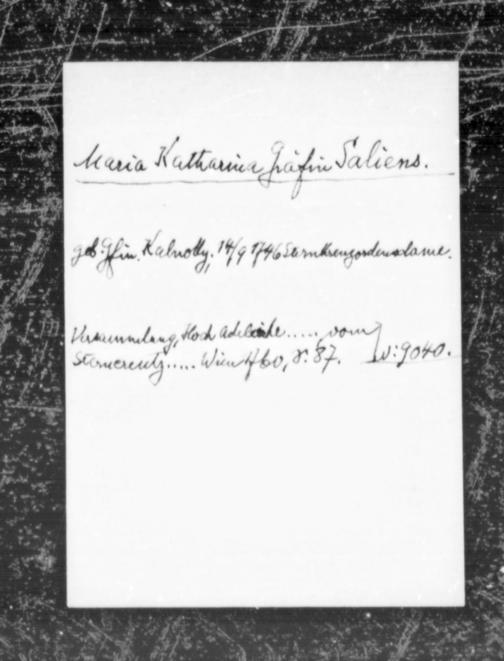 Maria Katharina Gräfin Saliens.
geb. Gfin. Kalnoky, 14/9 1746 Sternkreuzordensdame.
Versammlung, Hoch Adeliche ..... vom
Sterncreutz ..... Wien 1760, S. 87. N: 9040.